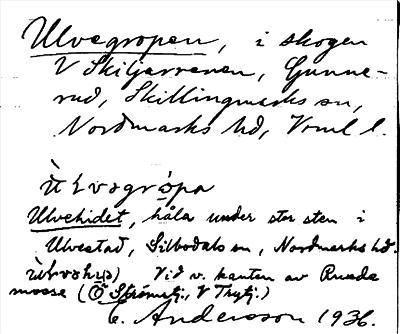 Ulvegropen, i skogen
V Skiljarrenen, Gunne-
rud, Skillingmarks sn,
Nordmarks hd, Vrml l.
Ulvehidet, håla under stor sten i
Ulvestad, Silbodals sn, Nordmarks hd.
Vid v. kanten av Ruads
mosse (Ö Strömstj., V Thytj.)
E. Andersson 1936.